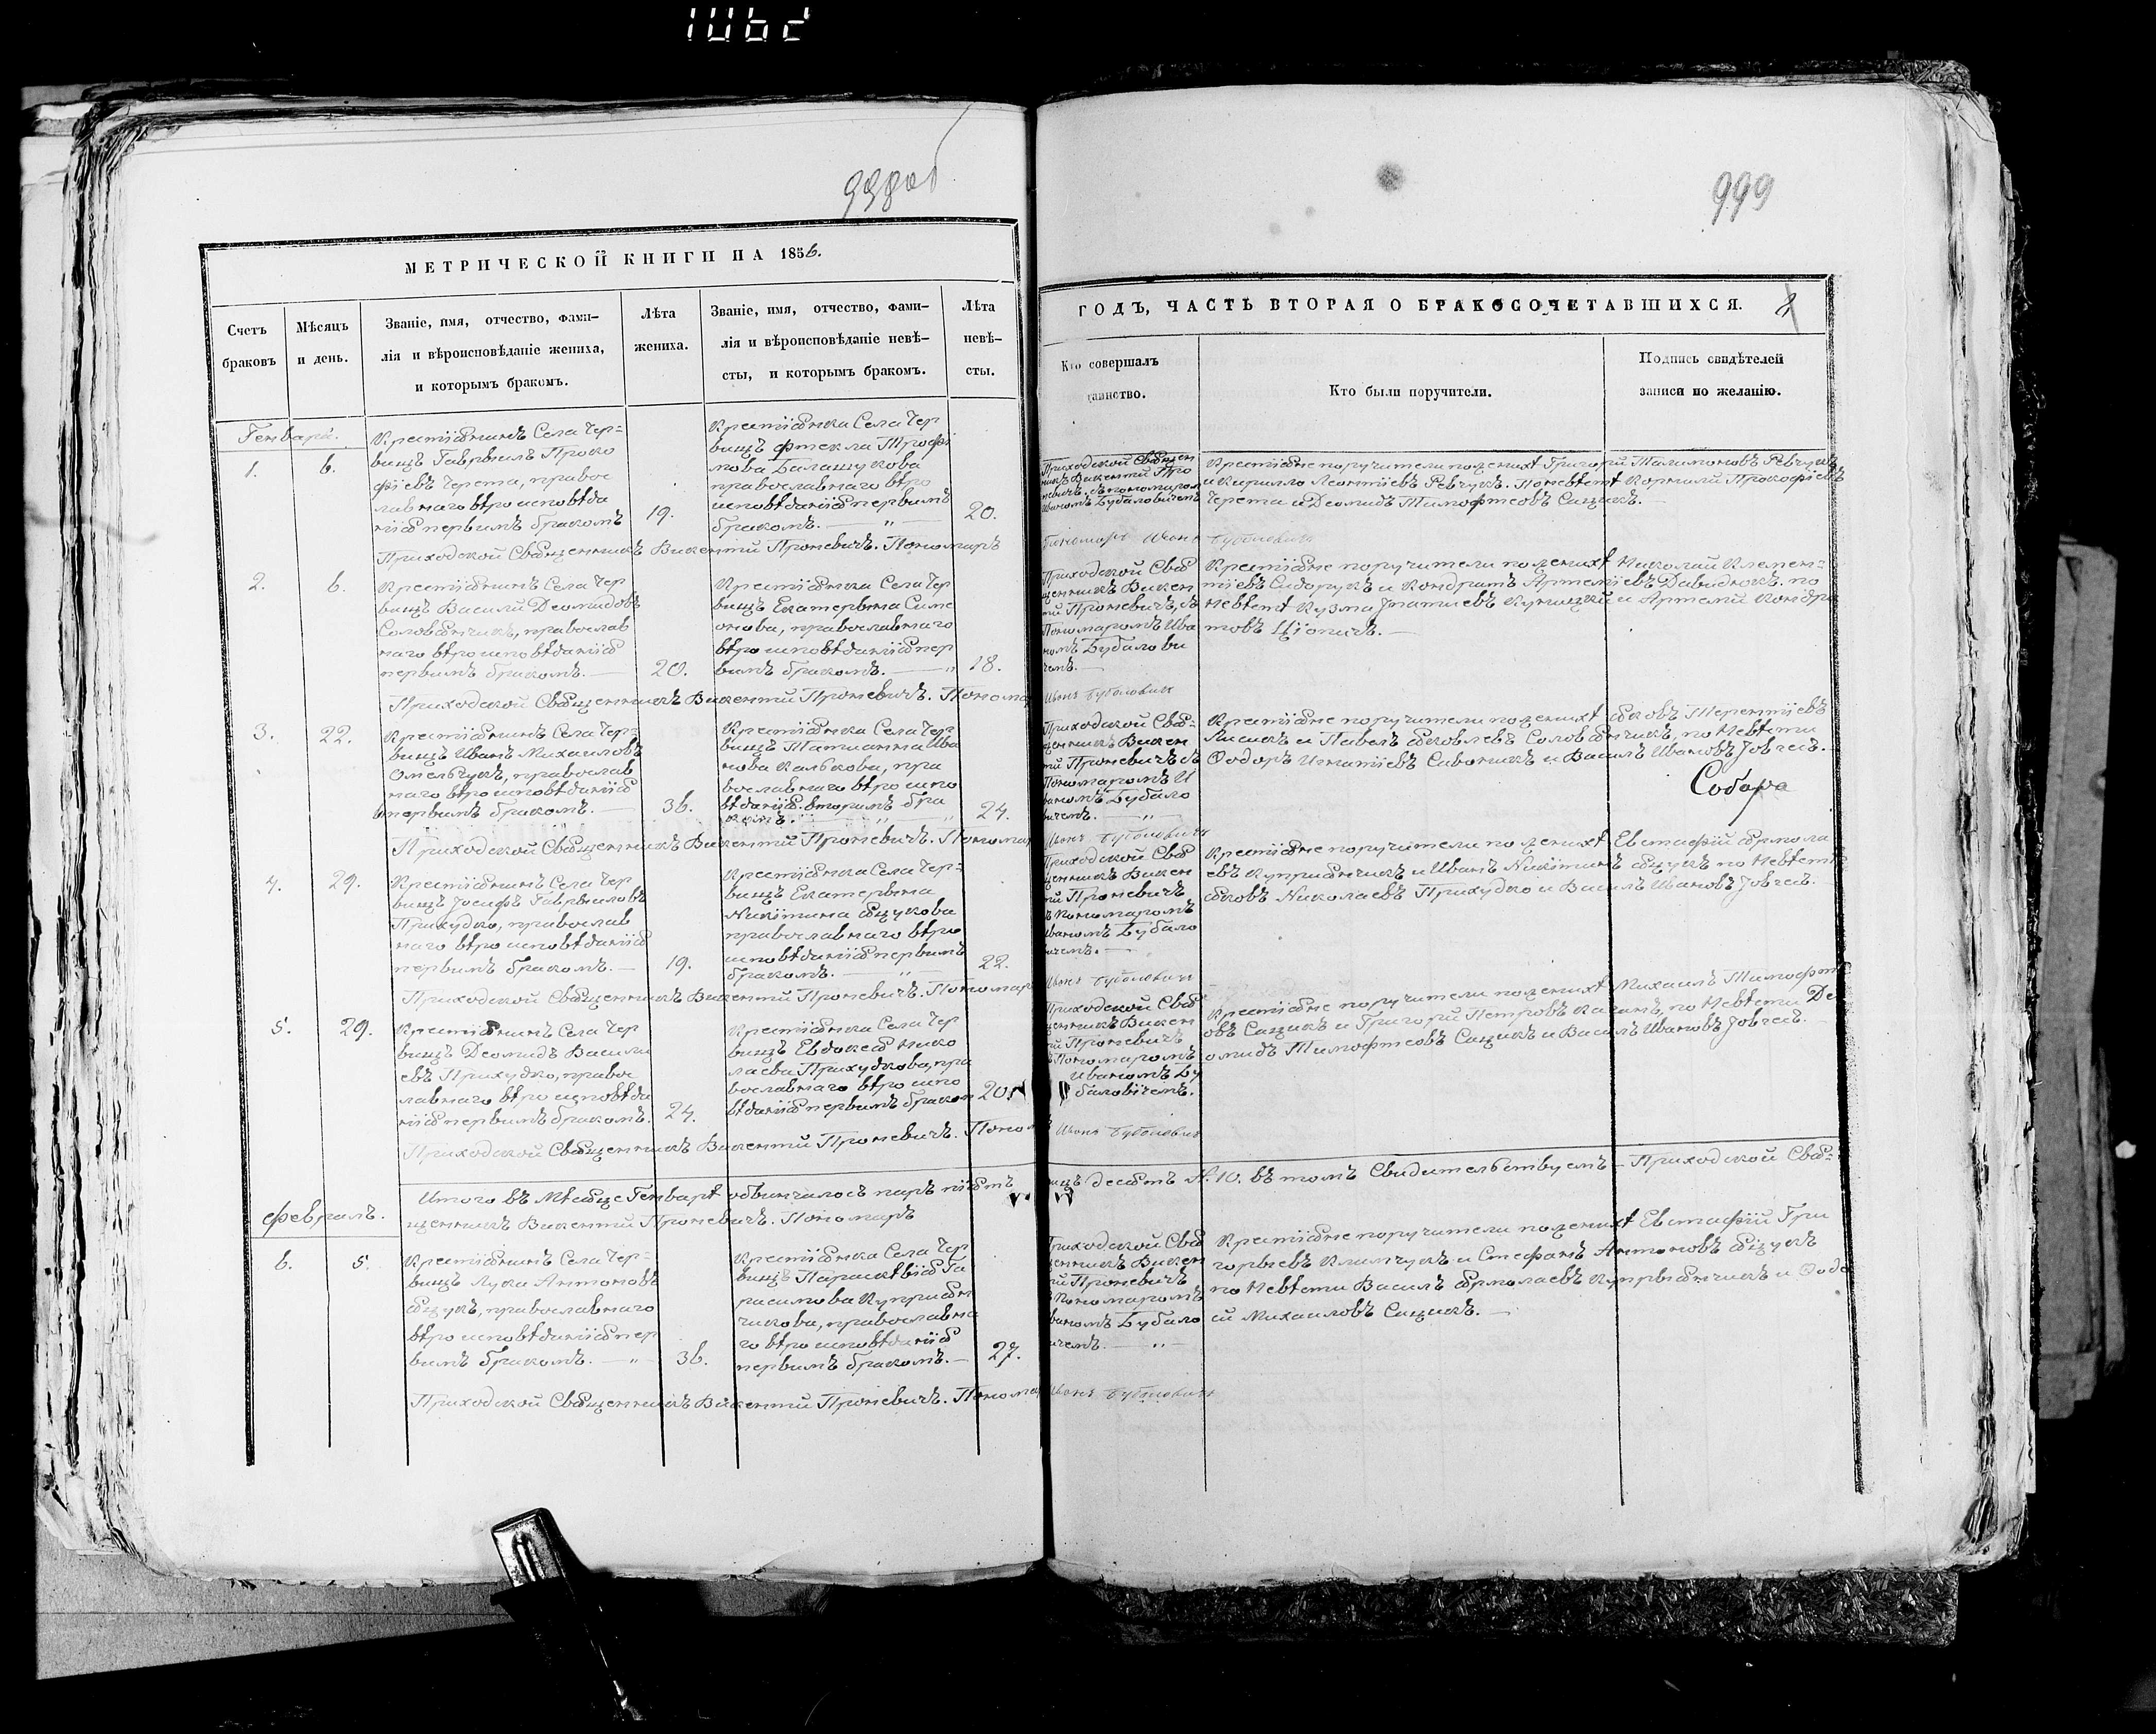 998 об
999
МЕТРИЧЕСКОЙ КНИГИ НА 1856.
Счетъ
браковъ
Мѣсяцъ
и день.
Званіе, имя, отчество, фами-
лія и вѣроисповѣданіе жениха,
и которымъ бракомъ.
Лѣта
жениха.
Званіе, имя, отчество, фами-
лія и вѣроисповѣданіе невѣ-
сты, и которымъ бракомъ.
Лѣта
невѣ-
сты.
ГОДЪ, ЧАСТЬ ВТОРАЯ О БРАКОСОЧЕТАВШИХСЯ.
Кто совершалъ
таинство.
Кто были поручители.
Подпись свидѣтелей
записи по желанію.
Генваря.
1.
6.
Крестіянинъ Села Чер=
вищъ Гаврыилъ Проко
фіевъ Черета, правос
лавнаго вѣроисповѣда
ніия первымъ бракомъ
19.
Крестіянка Села Чер
вищъ Фтекла Трофи
мова Балашукова
православнаго вѣро
исповѣданіия первымъ
бракомъ. — „ —
20.
Приходской Священ
никъ Викентій Про
невичъ, съ пономаром
Иваномъ Бубаловичемъ
Крестіяне поручители по женихѣ Григорій Талимоновъ Ревчукъ
и Кирилло Леонтіевъ Ревчукъ. По невѣстѣ Корнилій Прокофіевъ
Черета и Деомидъ Тимофтеовъ Сацикъ. —
Приходской Священникъ Викентій Проневичъ. Пономаръ
Иванъ Бубаловичъ
2.
6.
Крестіянинъ Села Чер
вищъ Василій Деомидовъ
Соловянчикъ, православ
наго вѣроисповѣданіия
первымъ бракомъ. —
20.
Крестіянка Села Чер
вищъ Екатерына Симе
онова, православнаго
вѣроисповѣданіия пер
вымъ бракомъ. — „
18.
Приходской Свя
щенникъ Викен
тій Проневичъ, съ
Пономаромъ Ива
номъ Бубалови
чемъ. —
Крестіяне поручители по женихѣ Николай Клемен=
тіевъ Сидорукъ и Кондратъ Артеміевъ Давидюкъ. по
невѣстѣ Кузма Игнатиевъ Куницкій и Артемій Кондра
товъ Цюпичъ. —
Приходской Священникъ Викентій Проневичъ. Понома
Иванъ Бубаловичъ
3.
22.
Крестіянинъ Села Чер=
вищъ Иванъ Михаиловъ
Омельчукъ, православ
наго вѣроисповѣданіия
первымъ бракомъ. —
36.
Крестіянка Села Чер
вищъ Татианна Ива
нова Калькова, пра
вославнаго вѣроиспо
вѣданіия. вторымъ бра
комъ. — „ —
24.
Приходской Свя=
щенникъ Викен
тій Проневичъ съ
Пономаромъ И
ваномъ Бубало
вичемъ. — „ —
Крестіяне поручители по женихѣ Яковъ Терентіевъ
Лисикъ и Павелъ Яковлевъ Соловянчикъ, по невѣсти
Ѳодоръ Игнатіевъ Сивочикъ и Василъ Ивановъ Іовчесъ.
Собора
Приходской Священникъ Викентій Проневичъ. Пономар
Иванъ Бубаловичъ
4.
29.
Крестіянинъ Села Чер
вищъ Іосифъ Гаврыиловъ
Прихудко, православ
наго вѣроисповѣданіия
первымъ бракомъ. —
19.
Крестіянка Села Чер=
вищъ Екатерына
Никітина Яцукова
православнаго вѣро
исповѣданіия первымъ
бракомъ. — „ —
22.
Приходской Свя
щенникъ Викен
тій Проневичъ
съ Пономаромъ
Иваномъ Бубало
вичемъ. —
Крестіяне поручители по женихѣ Евстафій Ярмола
евъ Купріянчикъ и Иванъ Никітинъ Яцукъ по невѣстѣ
Яковъ Николаевъ Прихудко и Василъ Ивановъ Іовчесъ. —
Приходской Священникъ Викентій Проневичъ. Пономар
Иванъ Бубаловичъ
5.
29.
Крестіянинъ Села Чер
вищъ Деомидъ Васили
евъ Прихудко, правос
лавнаго вѣроисповѣда
ніия первымъ бракомъ.
24.
Крестіянка Села Чер
вищъ Евдокея Нико
лаева Прихудкова, пра
вославнаго вѣроиспо
вѣданіия первымъ браком
20.
Приходской Свя
щенникъ Викен
тій Проневичъ
съ Пономаромъ
Иваномъ Бу
баловічемъ.
Крестіяне поручители по женихѣ Михаилъ Тимофте
овъ Сацикъ и Григорій Петровъ Касинъ, по невѣсти Де
омидъ Тимофтеовъ Сацикъ и Василъ Ивановъ Іовчесъ.
Приходской Священникъ Викентій Проневичъ. Поном
Иванъ Бубаловичъ
Итого въ Мѣсяце Генварѣ обвинчалось паръ піять
лицъ десять №. 10. въ томъ Свидительствуемъ — Приходской Свя=
щенникъ Викентій Проневичъ. Пономаръ
Февраль.
6.
5.
Крестіянинъ Села Чер=
вищъ Лука Антоновъ
Яцукъ, православнаго
вѣроисповѣданіия пер
вымъ бракомъ. — „ —
36.
Крестіянка Села Чер
вищъ Параскѣвія Га
расимова Купріян
чикова, православна
го вѣроисповѣданіия
первымъ бракомъ. —
27.
Приходской Свя
щенникъ Викен
тій Проневичъ
съ Пономаромъ
Иваномъ Бубало
вичемъ. — „ —
Крестіяне поручители по женихѣ Евстафій Гри
горыевъ Климчукъ и Стефанъ Антоновъ Яцукъ
по невѣсти Василъ Ярмолаевъ Купрыянчикъ и Ѳодо
сій Михаиловъ Сацикъ. —
Приходской Священникъ Викентій Проневичъ. Понома
Иванъ Бубаловичъ